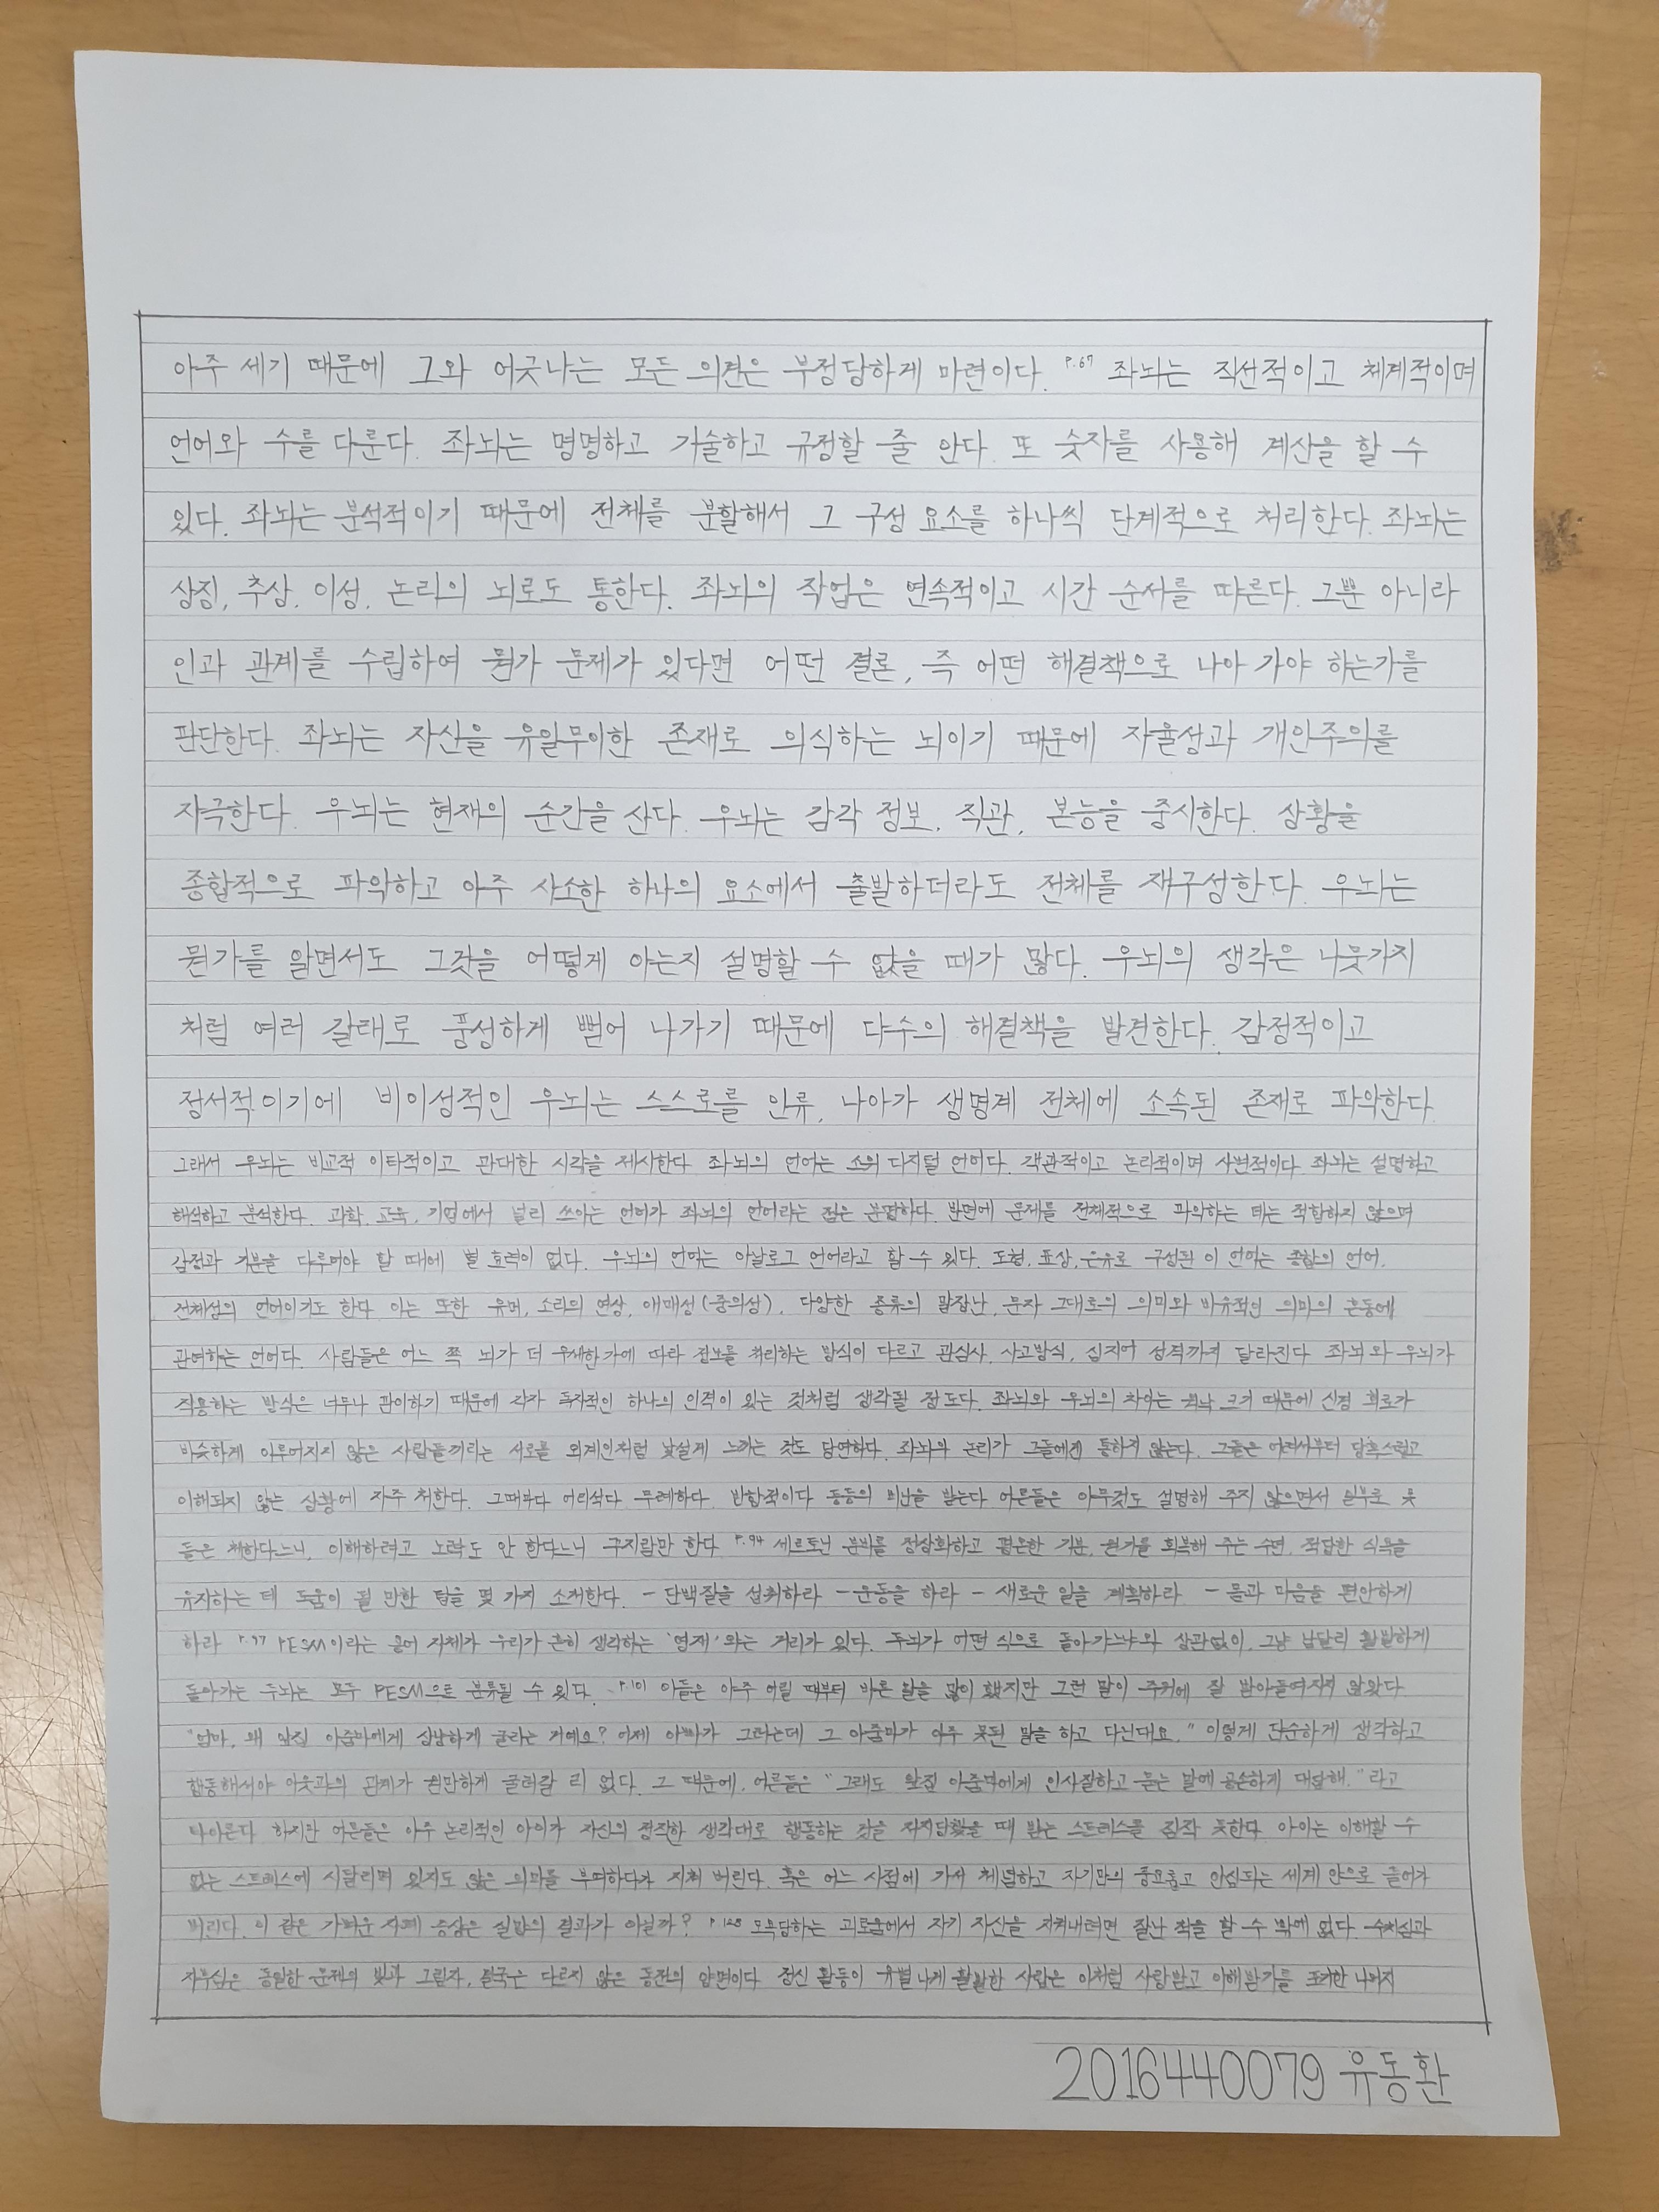 아주 세기 때문에 그와 어긋나는 모든 의견은 부정당하게 마련이다. P.67 좌뇌는 직선적이고 체계적이며
언어와 수를 다룬다. 좌뇌는 명명하고 기술하고 규정할 줄 안다. 또 숫자를 사용해 계산을 할 수
있다. 좌뇌는 분석적이기 때문에 전체를 분할해서 그 구성 요소를 하나씩 단계적으로 처리한다. 좌뇌는
상징, 추상, 이성, 논리의 뇌로도 통한다. 좌뇌의 작업은 연속적이고 시간 순서를 따른다. 그뿐 아니라
인과 관계를 수립하여 뭔가 문제가 있다면 어떤 결론, 즉 어떤 해결책으로 나아 가야 하는가를
판단한다. 좌뇌는 자신을 유일무이한 존재로 의식하는 뇌이기 때문에 자율성과 개인주의를
자극한다. 우뇌는 현재의 순간을 산다. 우뇌는 감각 정보, 직관, 본능을 중시한다. 상황을
종합적으로 파악하고 아주 사소한 하나의 요소에서 출발하더라도 전체를 재구성한다. 우뇌는
뭔가를 알면서도 그것을 어떻게 아는지 설명할 수 없을 때가 많다. 우뇌의 생각은 나뭇가지
처럼 여러 갈래로 풍성하게 뻗어 나가기 때문에 다수의 해결책을 발견한다. 감정적이고
정서적이기에 비이성적인 우뇌는 스스로를 인류, 나아가 생명계 전체에 소속된 존재로 파악한다.
그래서 우뇌는 비교적 이타적이고 관대한 시각을 제시한다. 좌뇌의 언어는 소위 디지털 언어다. 객관적이고 논리적이며 사변적이다. 좌뇌는 설명하고
해석하고 분석한다. 과학, 교육, 기업에서 널리 쓰이는 언어가 좌뇌의 언어라는 점은 분명하다. 반면에 문제를 전체적으로 파악하는 데는 적합하지 않으며
감정과 기분을 다루어야 할 때에 별 효력이 없다. 우뇌의 언어는 아날로그 언어라고 할 수 있다. 도형, 표상, 은유로 구성된 이 언어는 종합의 언어,
전체성의 언어이기도 한다. 이는 또한 유머, 소리의 연상, 애매성(중의성), 다양한 종류의 말장난, 문자 그대로의 의미와 비유적인 의미의 혼동에
관여하는 언어다. 사람들은 어느 쪽 뇌가 더 우세한가에 따라 정보를 처리하는 방식이 다르고 관심사, 사고방식, 심지어 성격까지 달라진다. 좌뇌와 우뇌가
작용하는 방식은 너무나 판이하기 때문에 각자 독자적인 하나의 인격이 있는 것처럼 생각될 정도다. 좌뇌와 우뇌의 차이는 워낙 크기 때문에 신경 회로가
비슷하게 이루어지지 않은 사람들끼리는 서로를 외계인처럼 낯설게 느끼는 것도 당연하다. 좌뇌의 논리가 그들에겐 통하지 않는다. 그들은 어려서부터 당혹스럽고
이해되지 않는 상황에 자주 처한다. 그때마다 어리석다, 무례하다, 반항적이다 등등의 비난을 받는다. 어른들은 아무것도 설명해 주지 않으면서 일부로 못
들은 체한다느니, 이해하려고 노력도 안 한다느니 구지람만 한다. P.94 세르토닌 분비를 정상화하고 평온한 기분, 원기를 회복해 주는 수면, 적당한 식욕을
유지하는 데 도움이 될 만한 팁을 몇 가지 소개한다. - 단백질을 섭취하라 - 운동을 하라 - 새로운 일을 계획하라 - 몸과 마음을 편안하게
하라 P.97 PESM이라는 용어 자체가 우리가 흔히 생각하는 '영재'와는 거리가 있다. 두뇌가 어떤 식으로 돌아가느냐와 상관없이, 그냥 남달리 활발하게
돌아가는 두뇌는 모두 PESM으로 분류될 수 있다. P.101 아들은 아주 어릴 때부터 바른 말을 많이 했지만 그런 말이 주위에 잘 받아들여지지 않았다.
"엄마, 왜 앞집 아줌마에게 상냥하게 굴라는 거예요? 어제 아빠가 그러는데 그 아줌마가 아주 못된 말을 하고 다닌대요." 이렇게 단순하게 생각하고
행동해서야 이웃과의 관계가 원만하게 굴러갈 리 없다. 그 때문에, 어른들은 "그래도 앞집 아줌마에게 인사잘하고 묻는 말에 공손하게 대답해."라고
타이른다. 하지만 어른들은 아주 논리적인 아이가 자신의 정직한 생각대로 행동하는 것을 저지당했을 때 받는 스트레스를 짐작 못한다. 아이는 이해할 수
없는 스트레스에 시달리며 있지도 않은 의미를 부여하다가 지쳐 버린다. 혹은 어느 시점에 가서 체념하고 자기만의 풍요롭고 안심되는 세계 안으로 들어가
버린다. 이 같은 가벼운 자폐 증상은 실망의 결과가 아닐까? P.128 모욕당하는 괴로움에서 자기 자신을 지켜내려면 잘난 척을 할 수 밖에 없다. 수치심과
자부심은 동일한 문제의 빛과 그림자, 결국은 다르지 않은 동전의 양면이다. 정신 활동이 유별나게 활발한 사람은 이처럼 사랑받고 이해받기를 포기한 나머지
2016440079 유동환